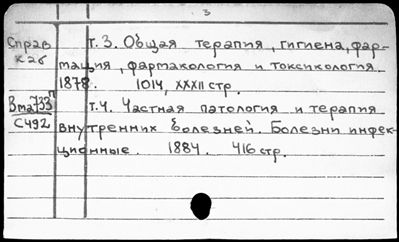 3
Справ т. 3. Общая терапия, гигиена, фар-
каб мация, фармакология и токсикология.
1878. 1014, XXXII стр.
Вта733п т. 4. Частная патология и терапия
С492 внутренних болезней. Болезни инфек-
ционные. 1884. 416 стр.